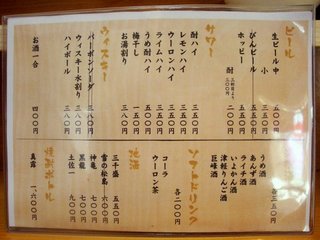 ビール
生ビール 中 五〇〇
小 三五〇
びんビール 五五〇
ホッピー 五〇〇
酎 二〇〇
サワー
酎ハイ 三五〇
レモンハイ 三五〇
ウーロンハイ 三五〇
ライムハイ 三五〇
うめ酎ハイ 三五〇
梅干し 一五〇
お湯割り 三八〇
ウィスキー
バーボンソーダ 三八〇
ウィスキー水割り 三八〇
ハイボール 三八〇
お酒一合 四〇〇
うめ酒
あんず酒
ライチ酒
いよかん酒
津軽りんご酒
巨峰酒
各三五〇円
ソフトドリンク
コーラ
ウーロン茶
各二〇〇円
地酒
三千盛 五五〇円
雪の松島 六〇〇円
神亀 七〇〇円
黒龍 九〇〇円
土佐
焼酎ボトル
真露 一、六〇〇円